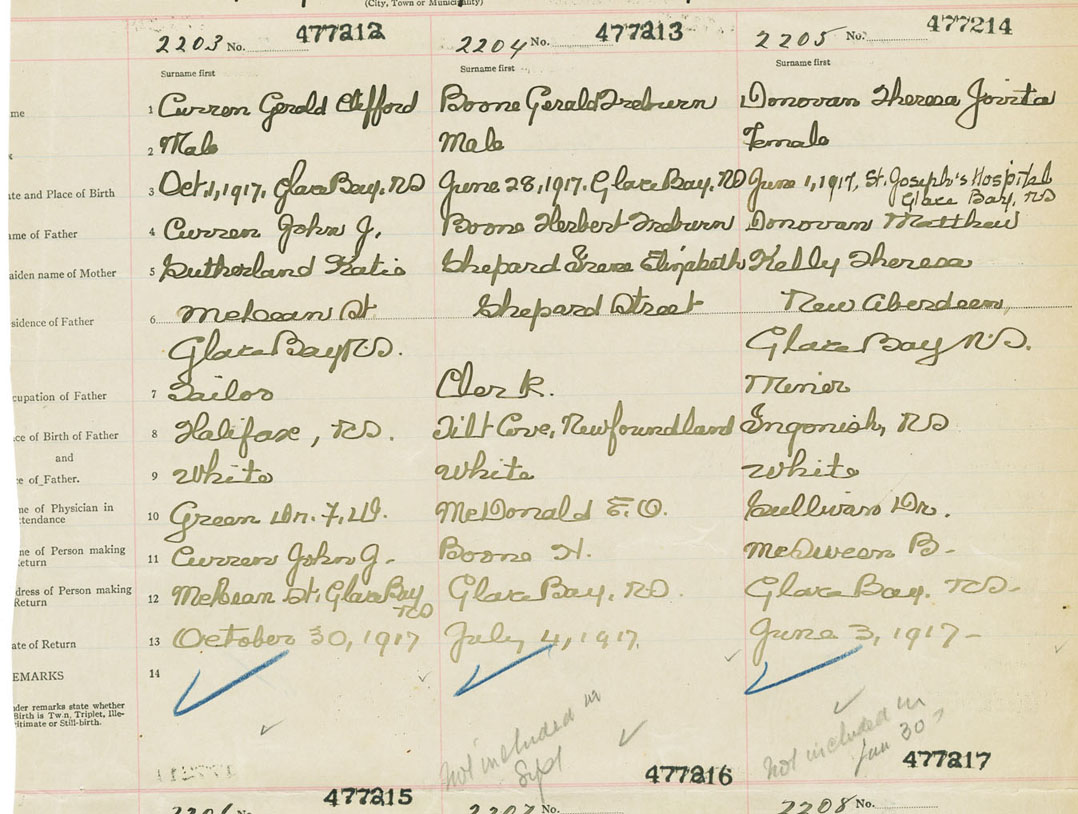 (City, Town or Municipality)
2203 No. 477212 2204 No. 477213 2205 No. 477214
Surname first Surname first Surname first
me 1 Curren Gerald Clifford Boone Gerald Treburn Donovan Theresa Jovita
2 Male Male Female
ate and Place of Birth 3 Oct 1, 1917, Glace Bay, NS June 28, 1917. Glace Bay, NS June 1, 1917, St. Joseph's Hospital
Glace Bay, NS
me of Father 4 Curren John J. Boone Herbert Treburn Donovan Matthew
aiden name of Mother 5 Sutherland Katie Shepard Irene Elizabeth Kelly Theresa
sidence of Father 6 McLean St Shepard Street New Aberdeen,
Glace Bay NS. Glace Bay N.S.
cupation of Father 7 Sailor Clerk. Miner
ce of Birth of Father 8 Halifax, NS. Tilt Cove, Newfoundland Ingonish, NS
and
e of Father. 9 White White White
ne of Physician in
ttendance 10 Green Dr. F.W. McDonald E.O. Sullivan Dr.
ne of Person making
Return 11 Curren John J. Boone H. B.
dress of Person making
Return 12 McLean St, Glace Bay Glace Bay, NS. Glace Bay. NS.
NS
ate of Return 13 October 30, 1917 July 4, 1917. June 3, 1917-
EMARKS 14
der remarks state whether
Birth is Twin, Triplet, Ille-
itimate or Still-birth.
Not included in
Sept
Not included in
Jun 30?
477215 477216 477217
2206 No. 2207 No. 2208 No.